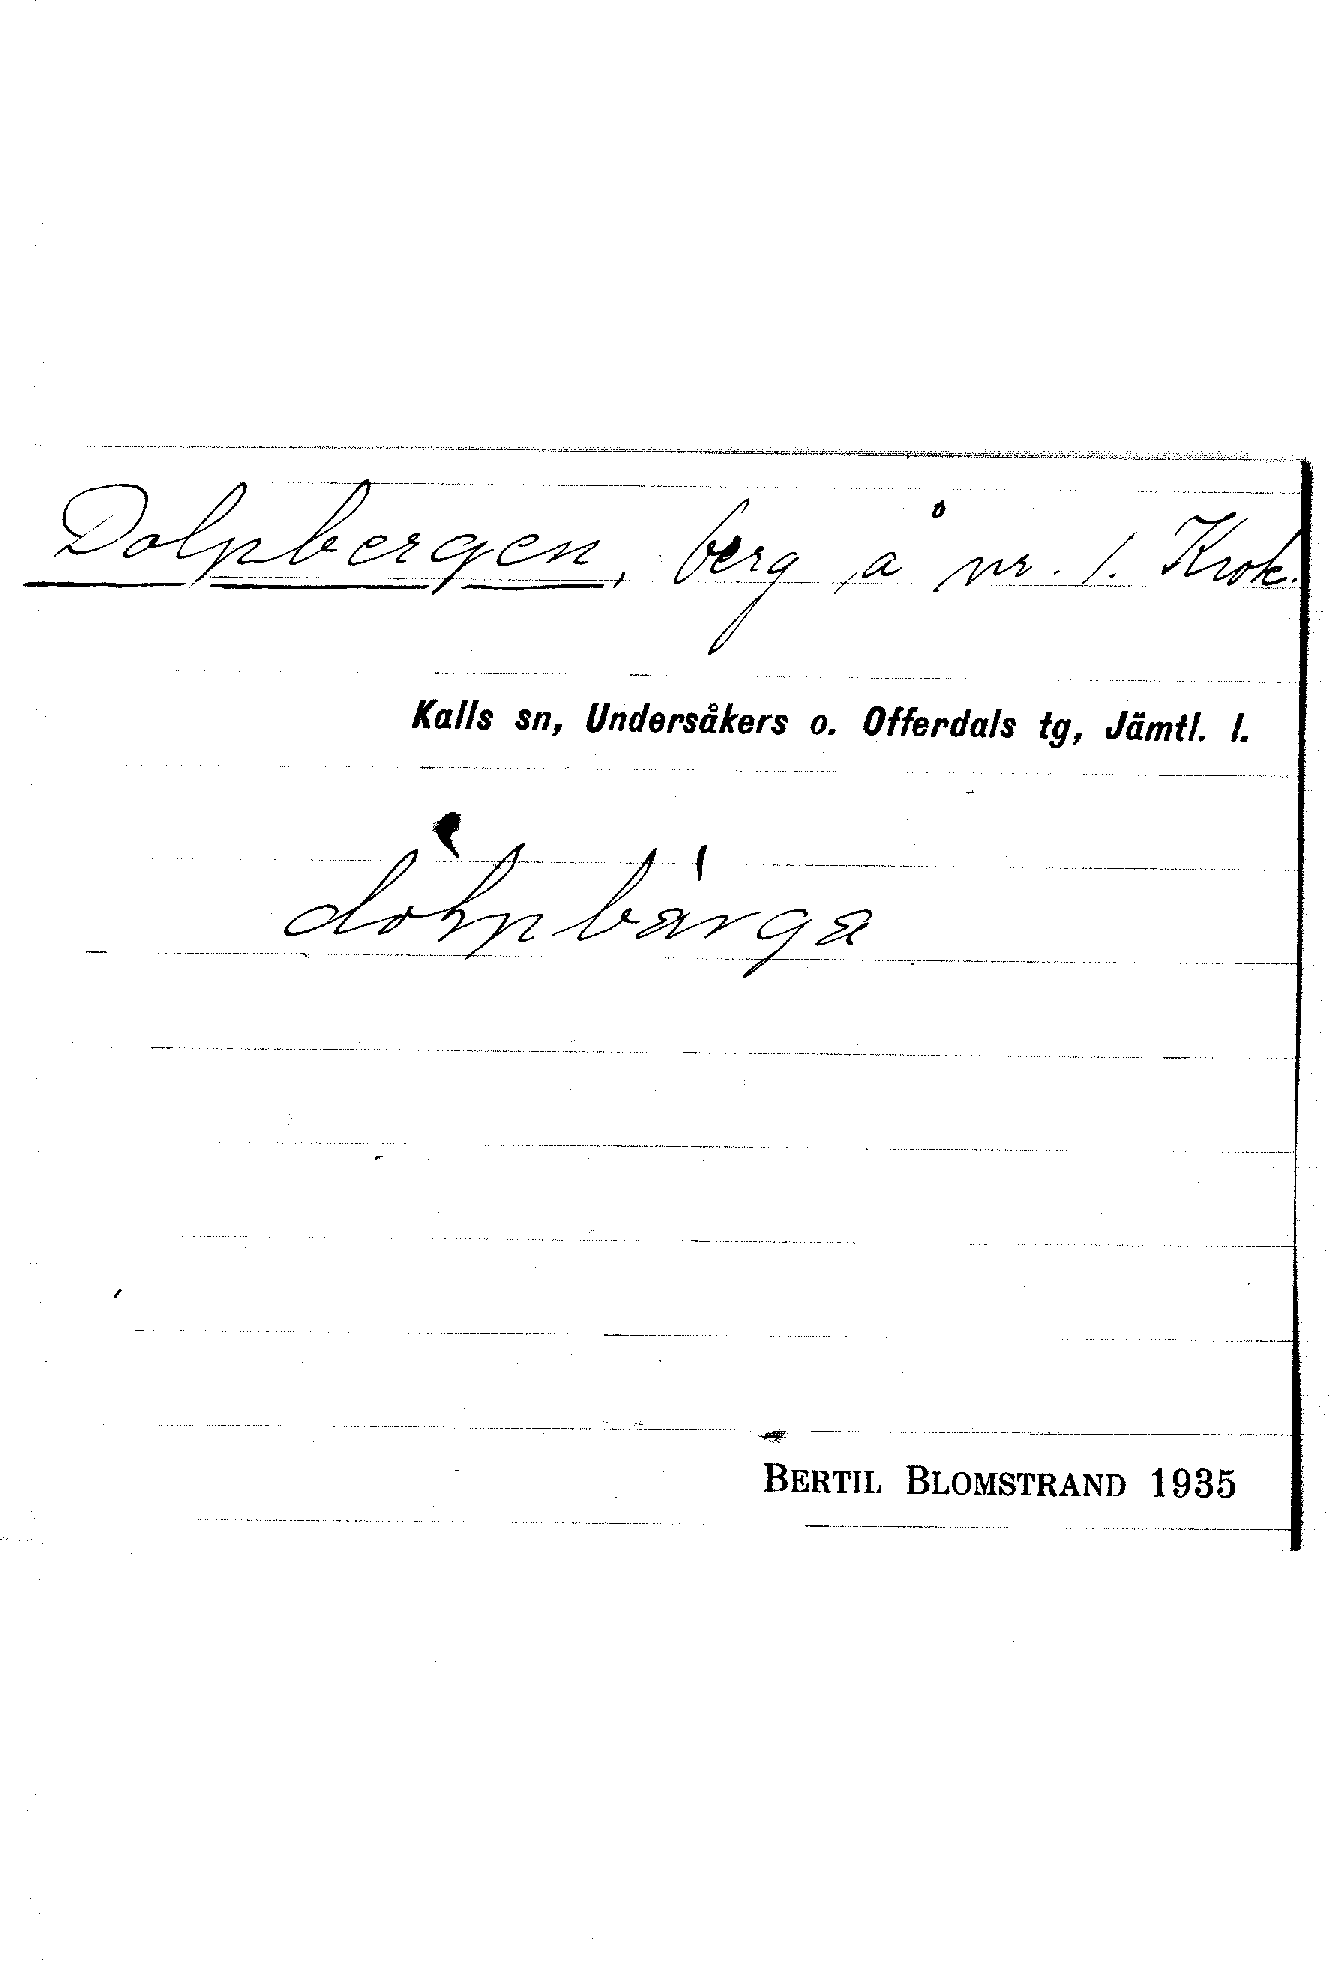 Dolpbergen, berg å nr. 1. Krok.
Kalls sn, Undersåkers o. Offerdals tg, Jämtl. l.
BERTIL BLOMSTRAND 1935